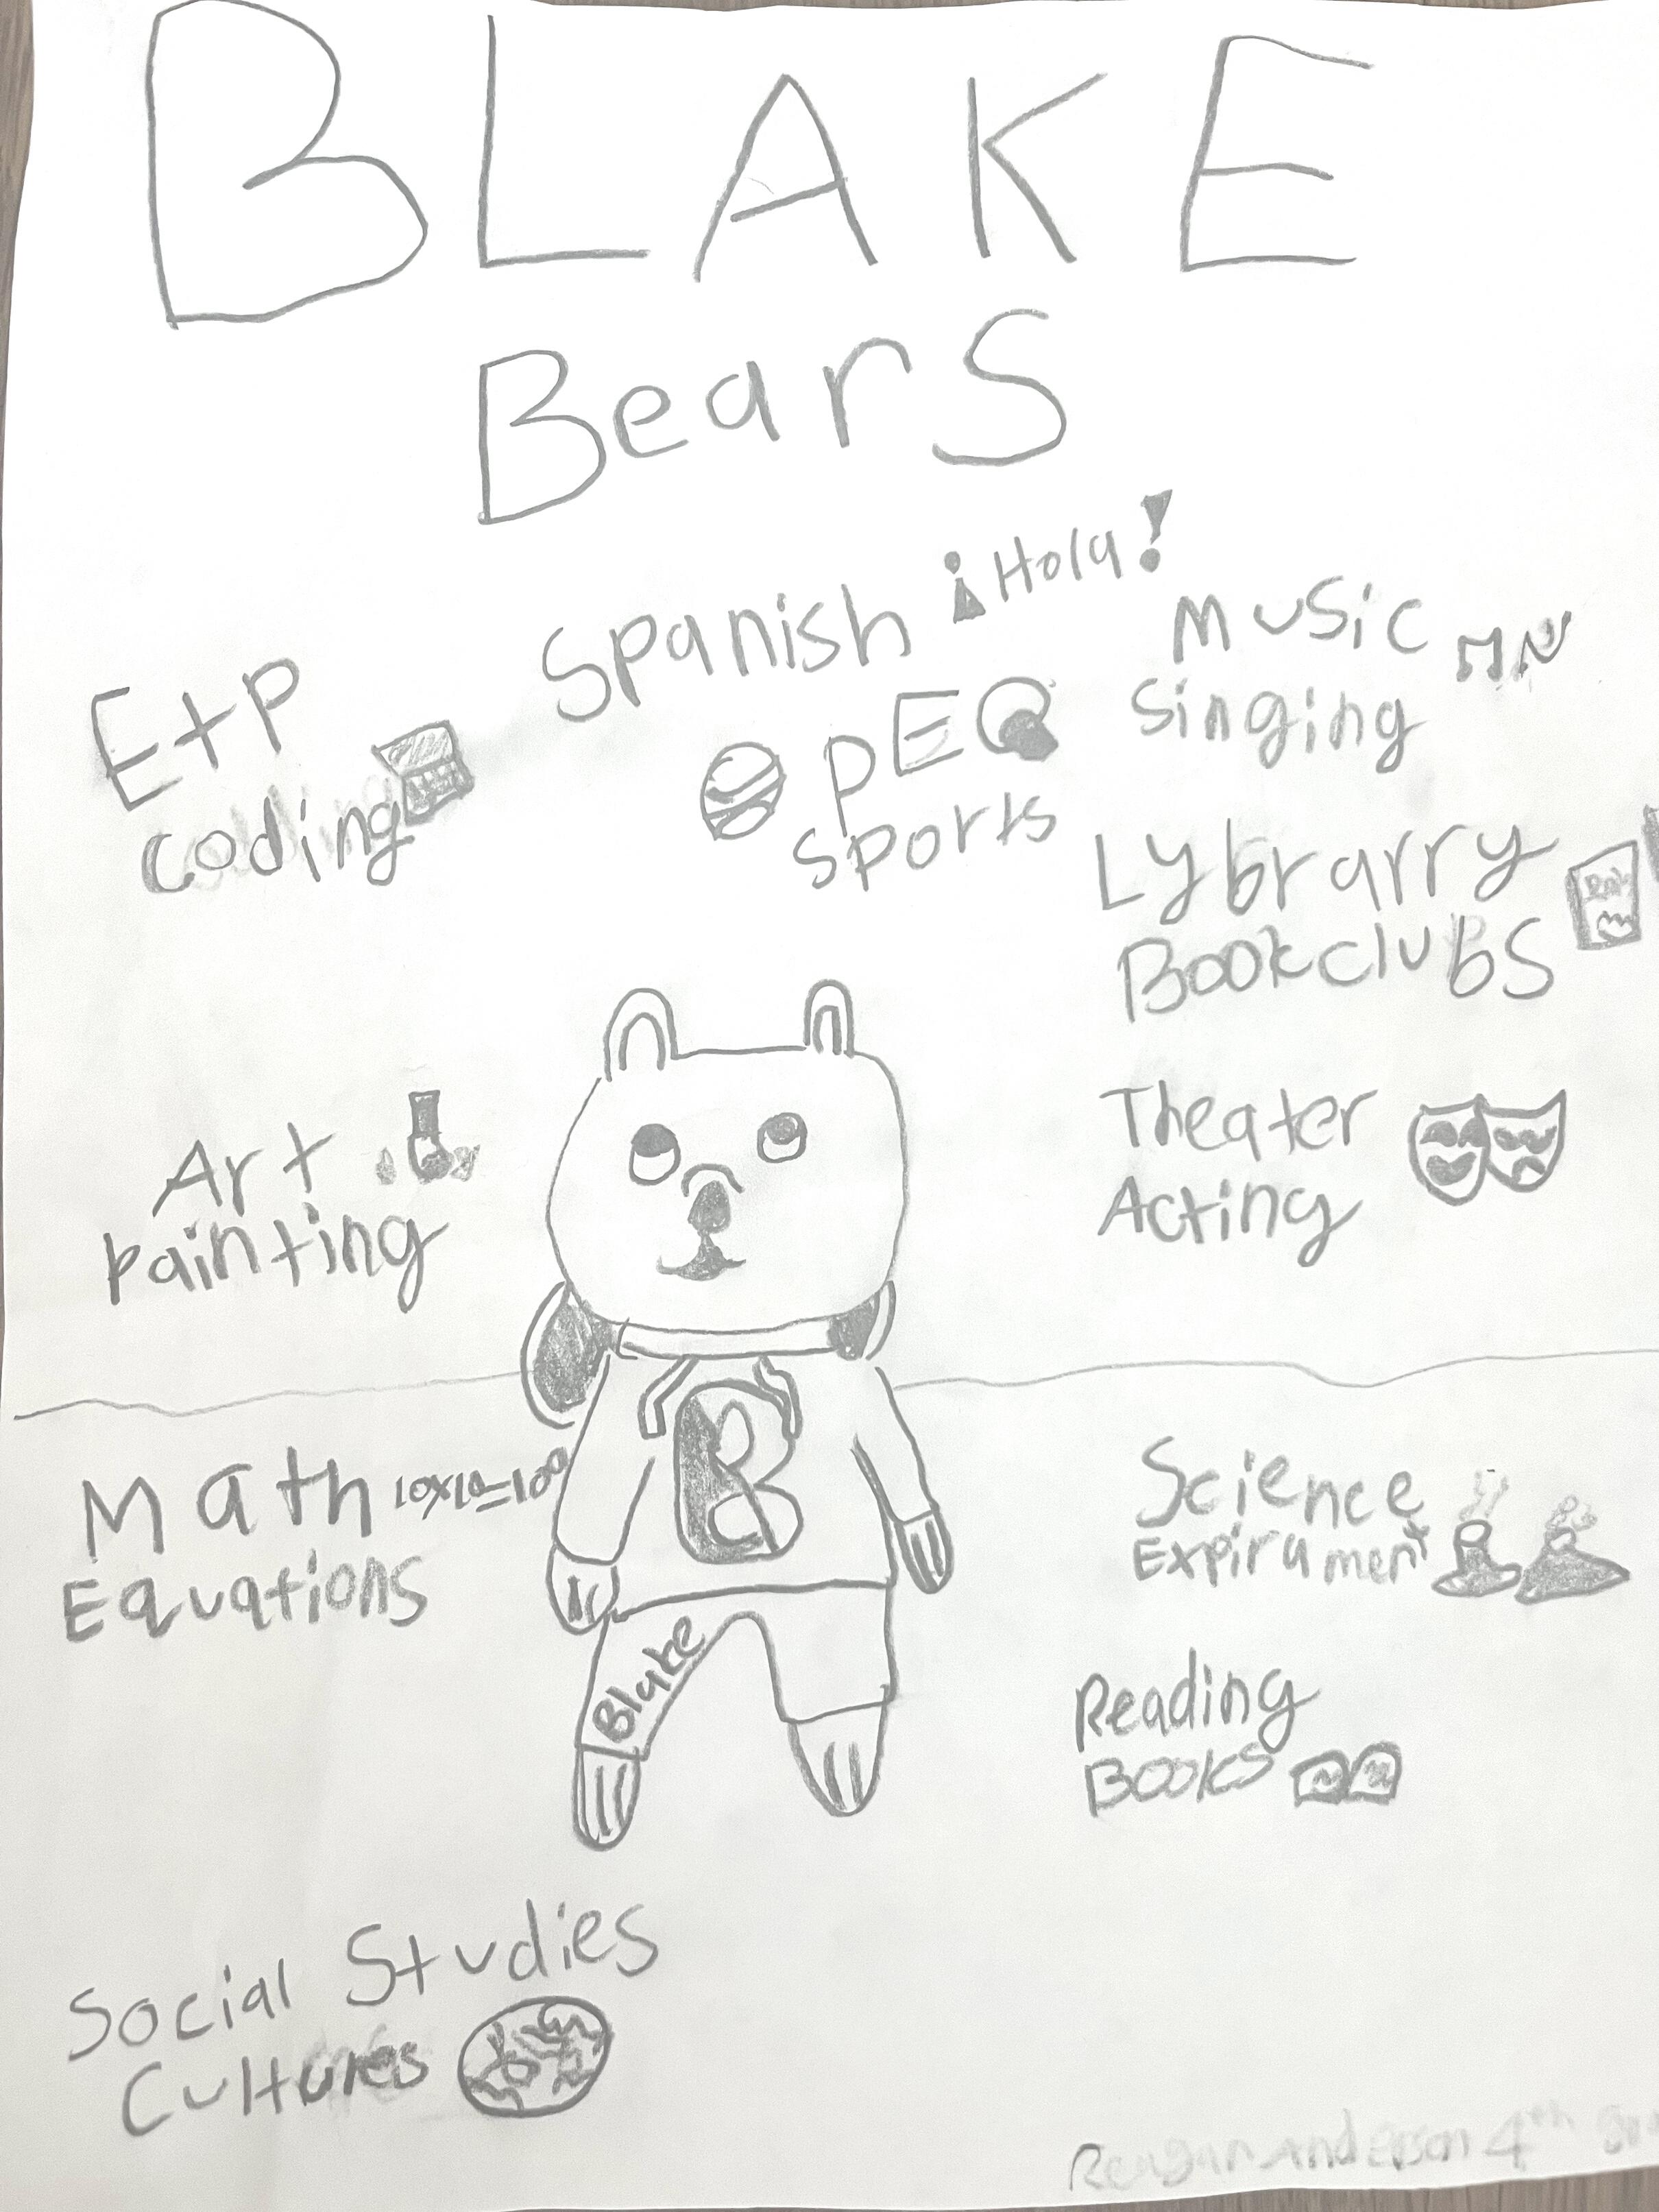 BLAKE
Bears
Spanish ¡Hola!
Music
Singing
E+P
coding
PE
sports
Lybrarry
Bookclubs
Theater
Acting
Art
painting
B
Math 10x10=100
Equations
Science
Expirament
Blake
Reading
Books
Social Studies
Cultures
Reagan Anderson 4th